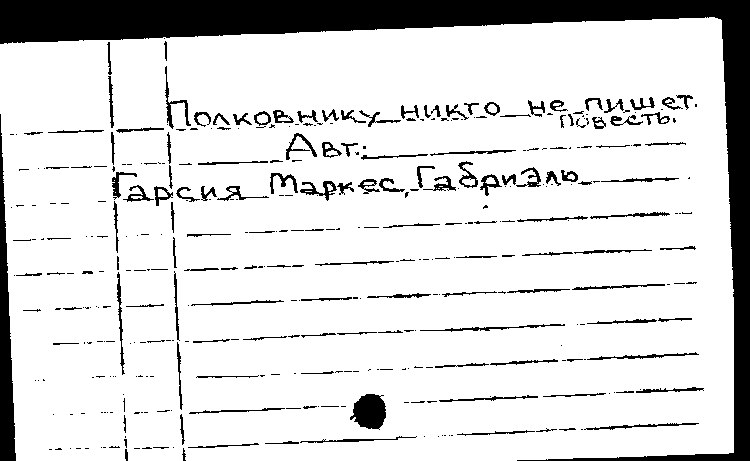 Полковнику никто не пишет.
Повесть.
Авт.:
Гарсия Маркес, Габриэль